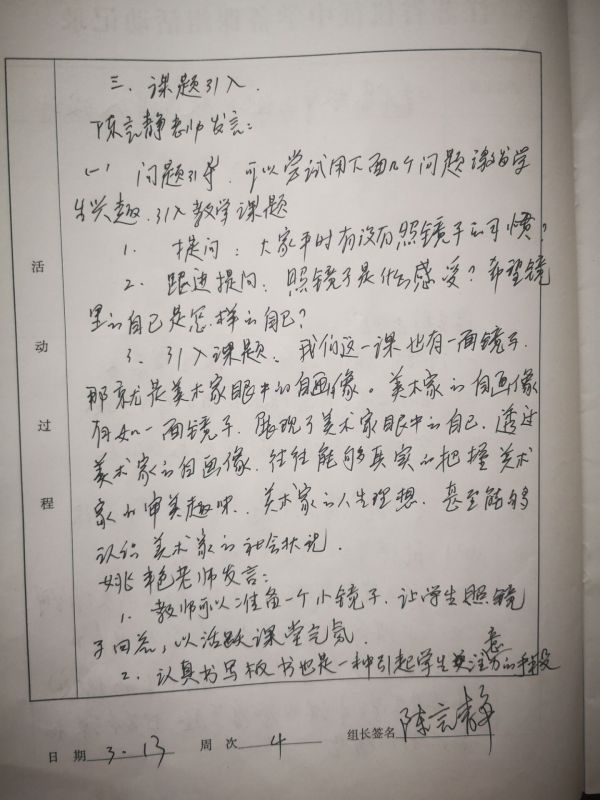 三、课题引入.
陈言静老师发言:
(一) 问题引导. 可以尝试用下面几个问题激发学
生兴趣. 引入教学课题
1. 提问: 大家平时有没有照镜子的习惯?
2. 跟进提问: 照镜子是什么感受? 希望镜
里的自己是怎样的自己?
3、引入课题、我们这一课也有一面镜子.
那就是美术家眼中的自画像。美术家的自画像
有如一面镜子. 展现了美术家眼中的自己. 透过
美术家的自画像. 往往能够真实的把握美术
家的审美趣味、美术家的人生理想. 甚至能够
认识美术家的社会状况.
姚艳老师发言:
1. 教师可以准备一个小镜子. 让学生照镜
子回答, 以活跃课堂气氛.
2. 认真书写板书也是一种引起学生注意的手段
活动过程
日 期 3.13 周 次 4 组长签名 陈言静